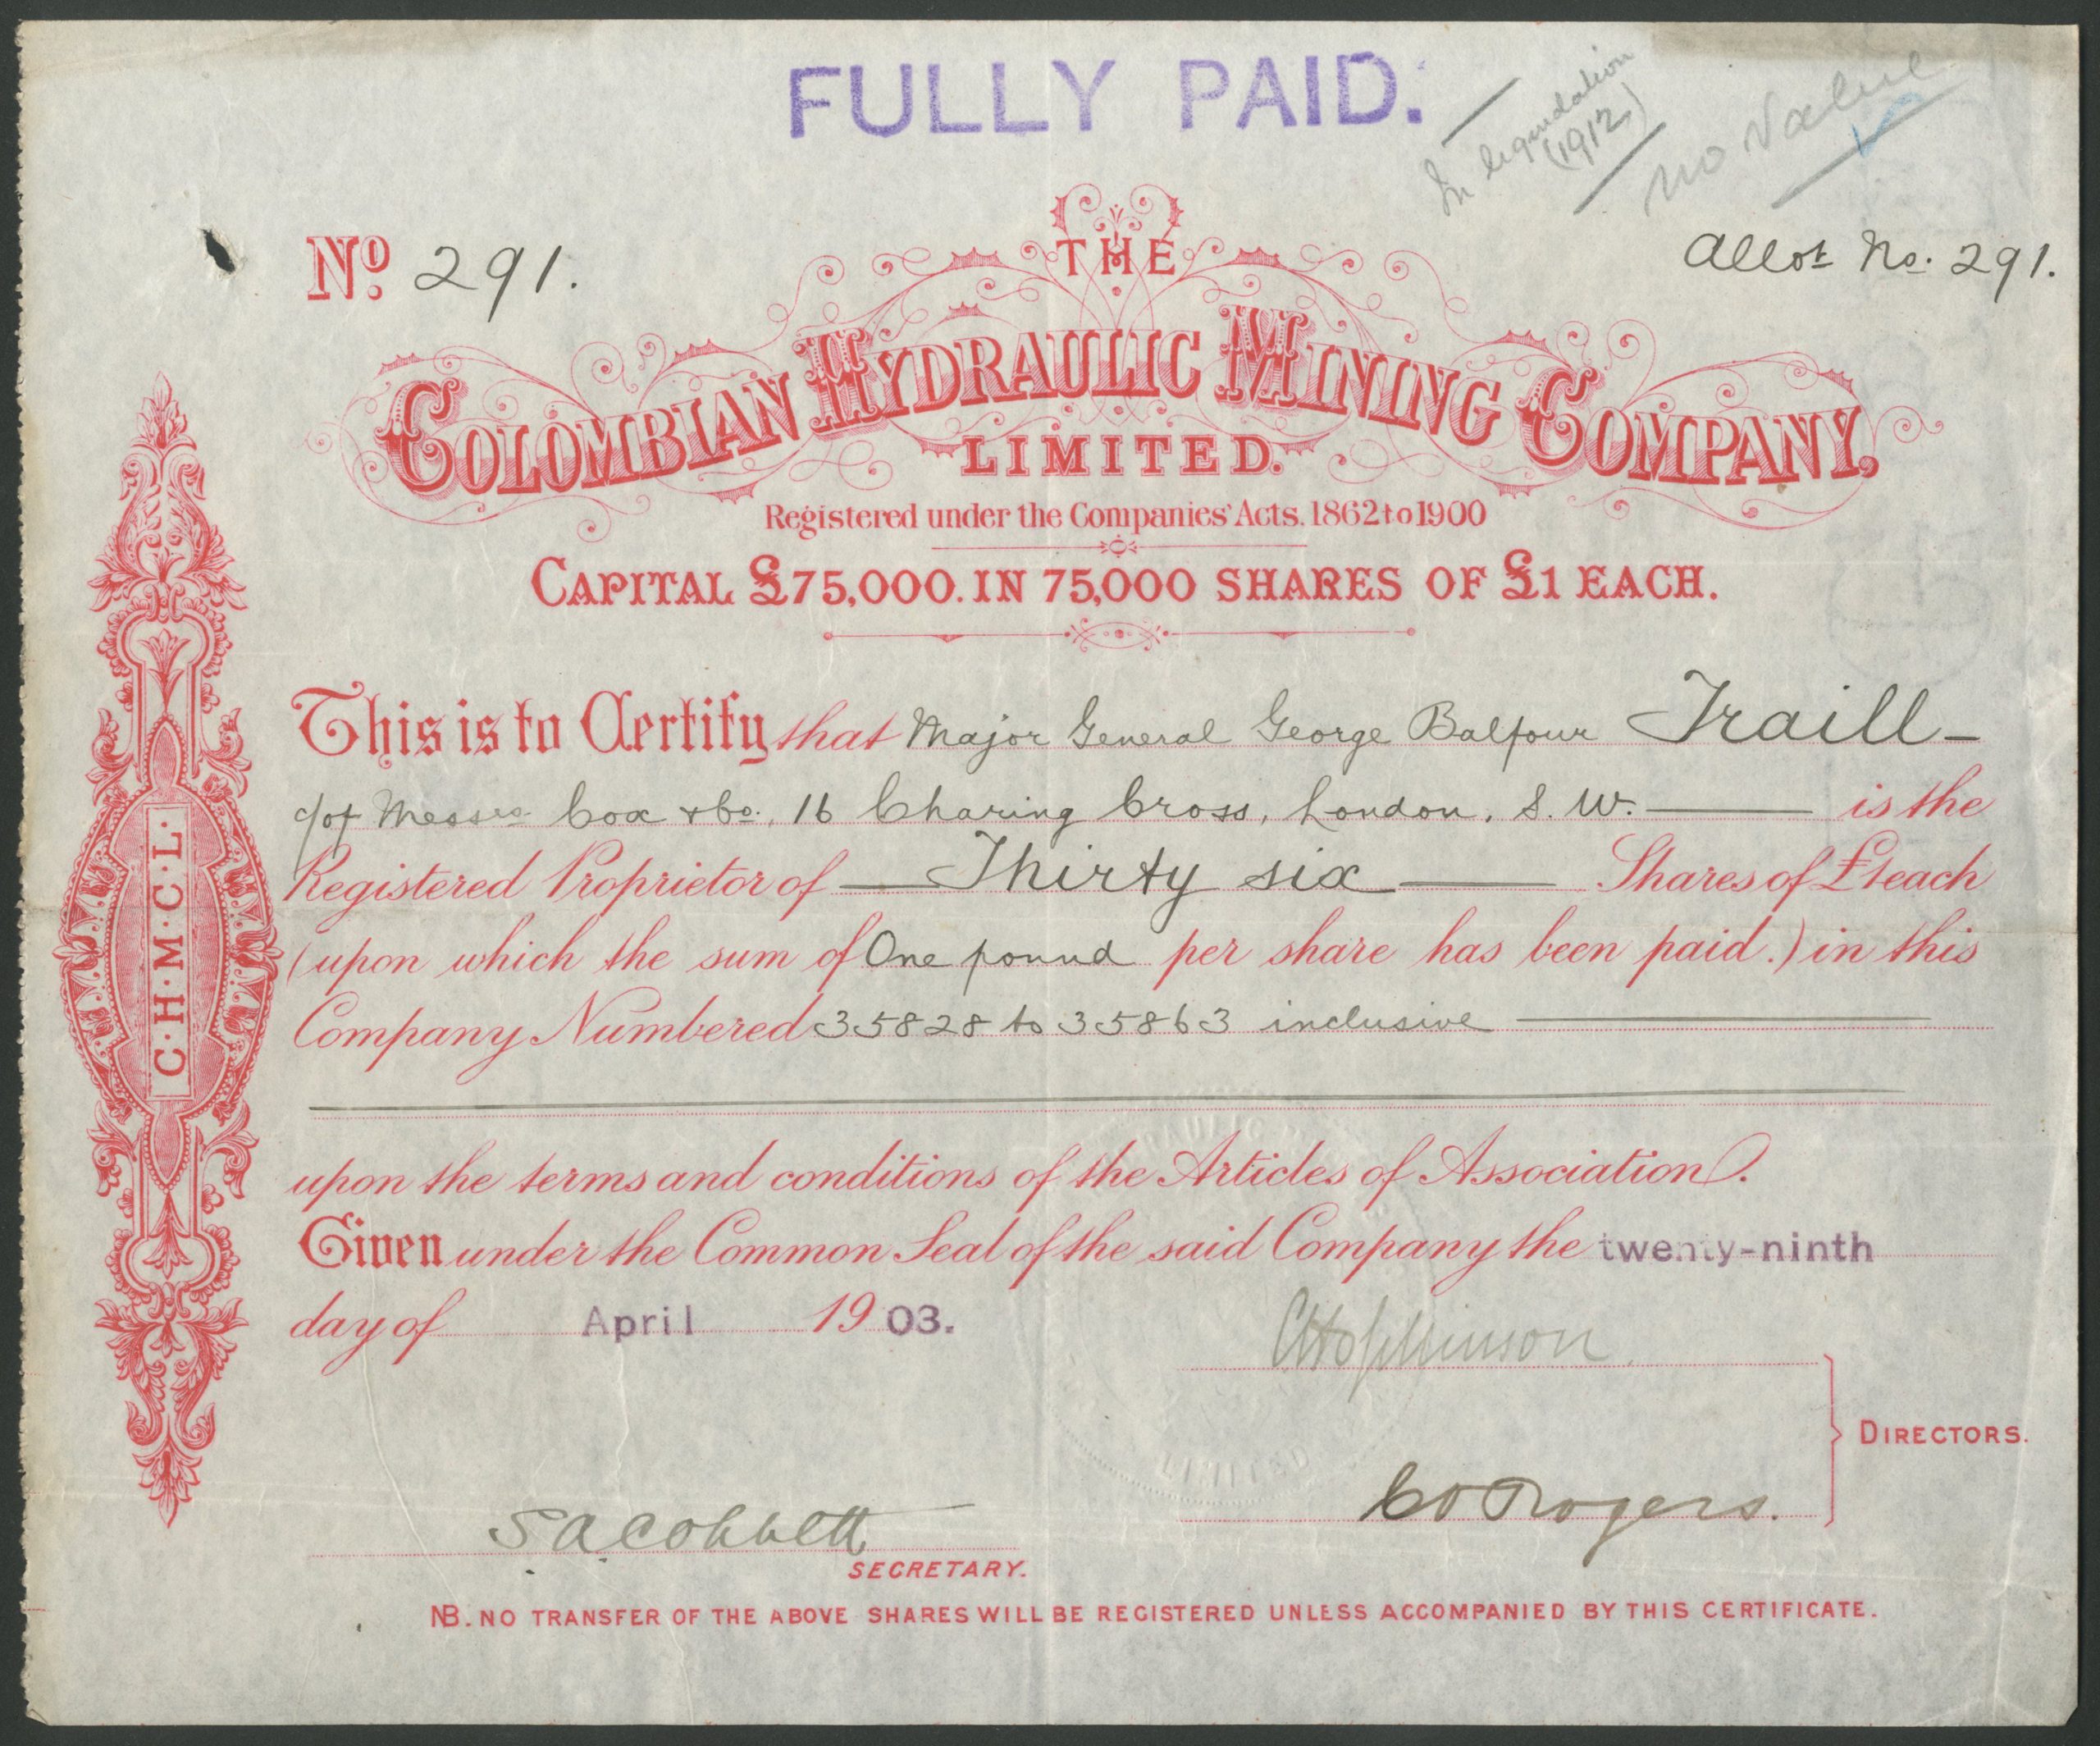 FULLY PAID.
In liquidation
(1912)
no value
No. 291.
Allot No. 291.
THE
COLOMBIAN HYDRAULIC MINING COMPANY,
LIMITED.
Registered under the Companies' Acts. 1862 to 1900
CAPITAL £75,000. IN 75,000 SHARES OF £1 EACH.
This is to Certify that Major General George Balfour Traill -
c/of Messrs Cox & Co., 16 Charing Cross, London, S. W. is the
Registered Proprietor of Thirty six Shares of £1 each
(upon which the sum of One pound per share has been paid.) in this
Company Numbered 35828 to 35863 inclusive
upon the terms and conditions of the Articles of Association.
Given under the Common Seal of the said Company the twenty-ninth
day of April 1903.
C Hopkinson
DIRECTORS.
C O Rogers.
S A Cobbett
SECRETARY.
NB. NO TRANSFER OF THE ABOVE SHARES WILL BE REGISTERED UNLESS ACCOMPANIED BY THIS CERTIFICATE.
C.H.M.C.L.
LIMITED